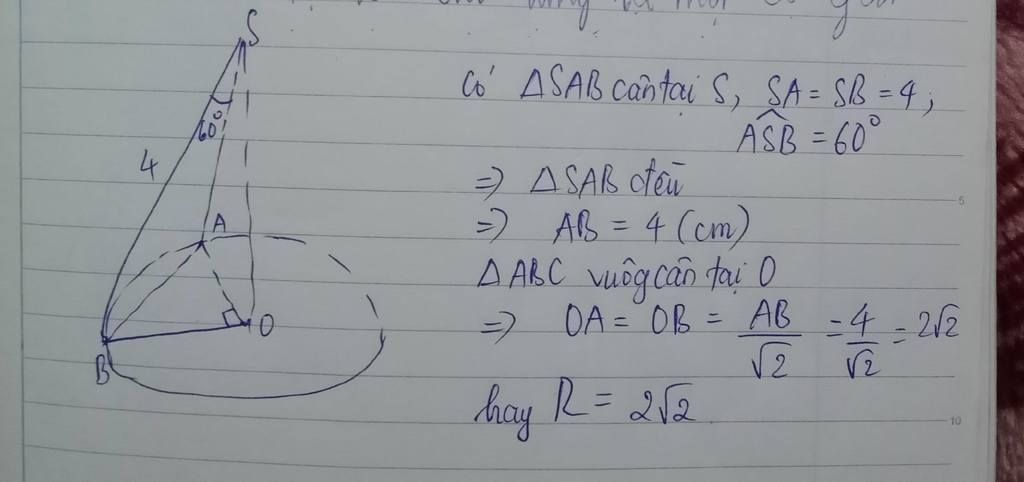 S
Có ΔSAB cân tại S, SA = SB = 4;
60°
ASB = 60°
4
=> ΔSAB đều
A
=> AB = 4 (cm)
ΔABC vuôg cân tại O
=> OA = OB = AB/√2 = 4/√2 = 2√2
O
B
hay R = 2√2
5
10